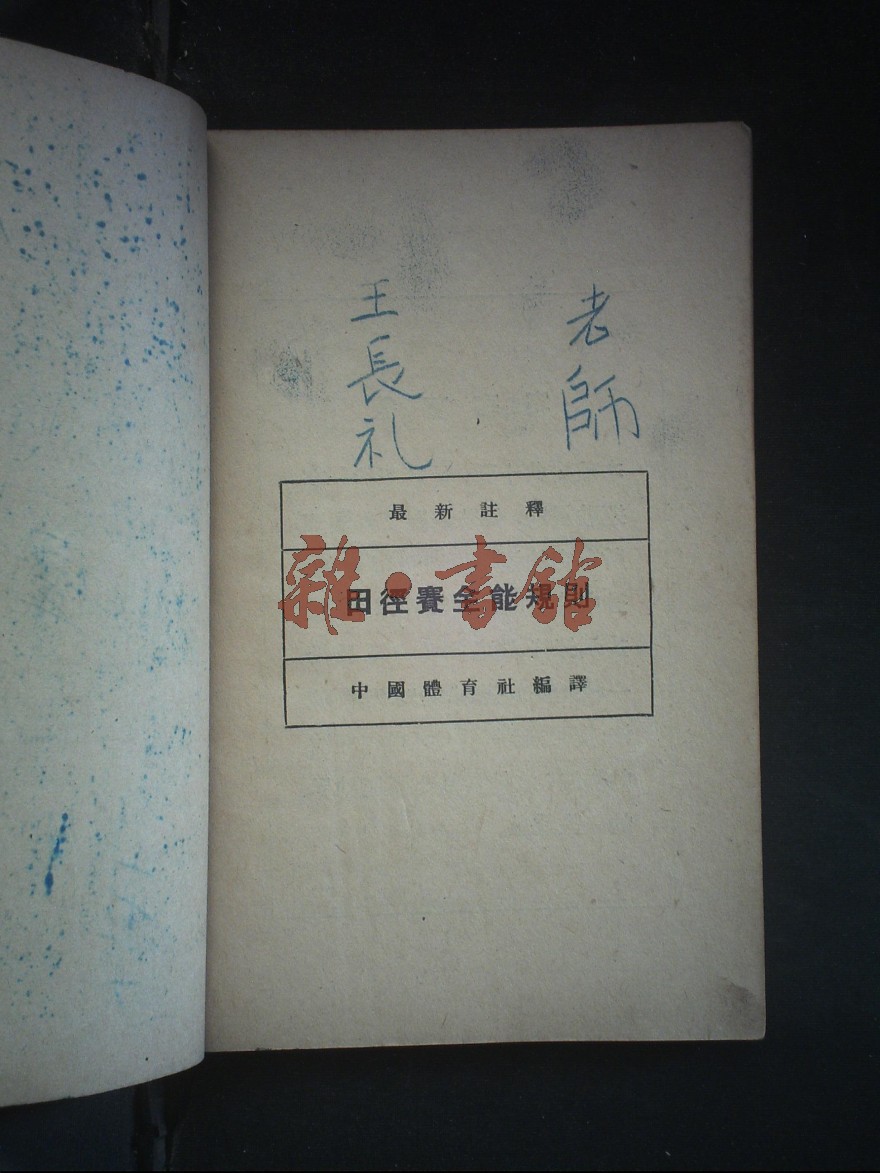 老師
王長礼
最新註釋
田徑賽全能規則
雜·書館
中國體育社編譯